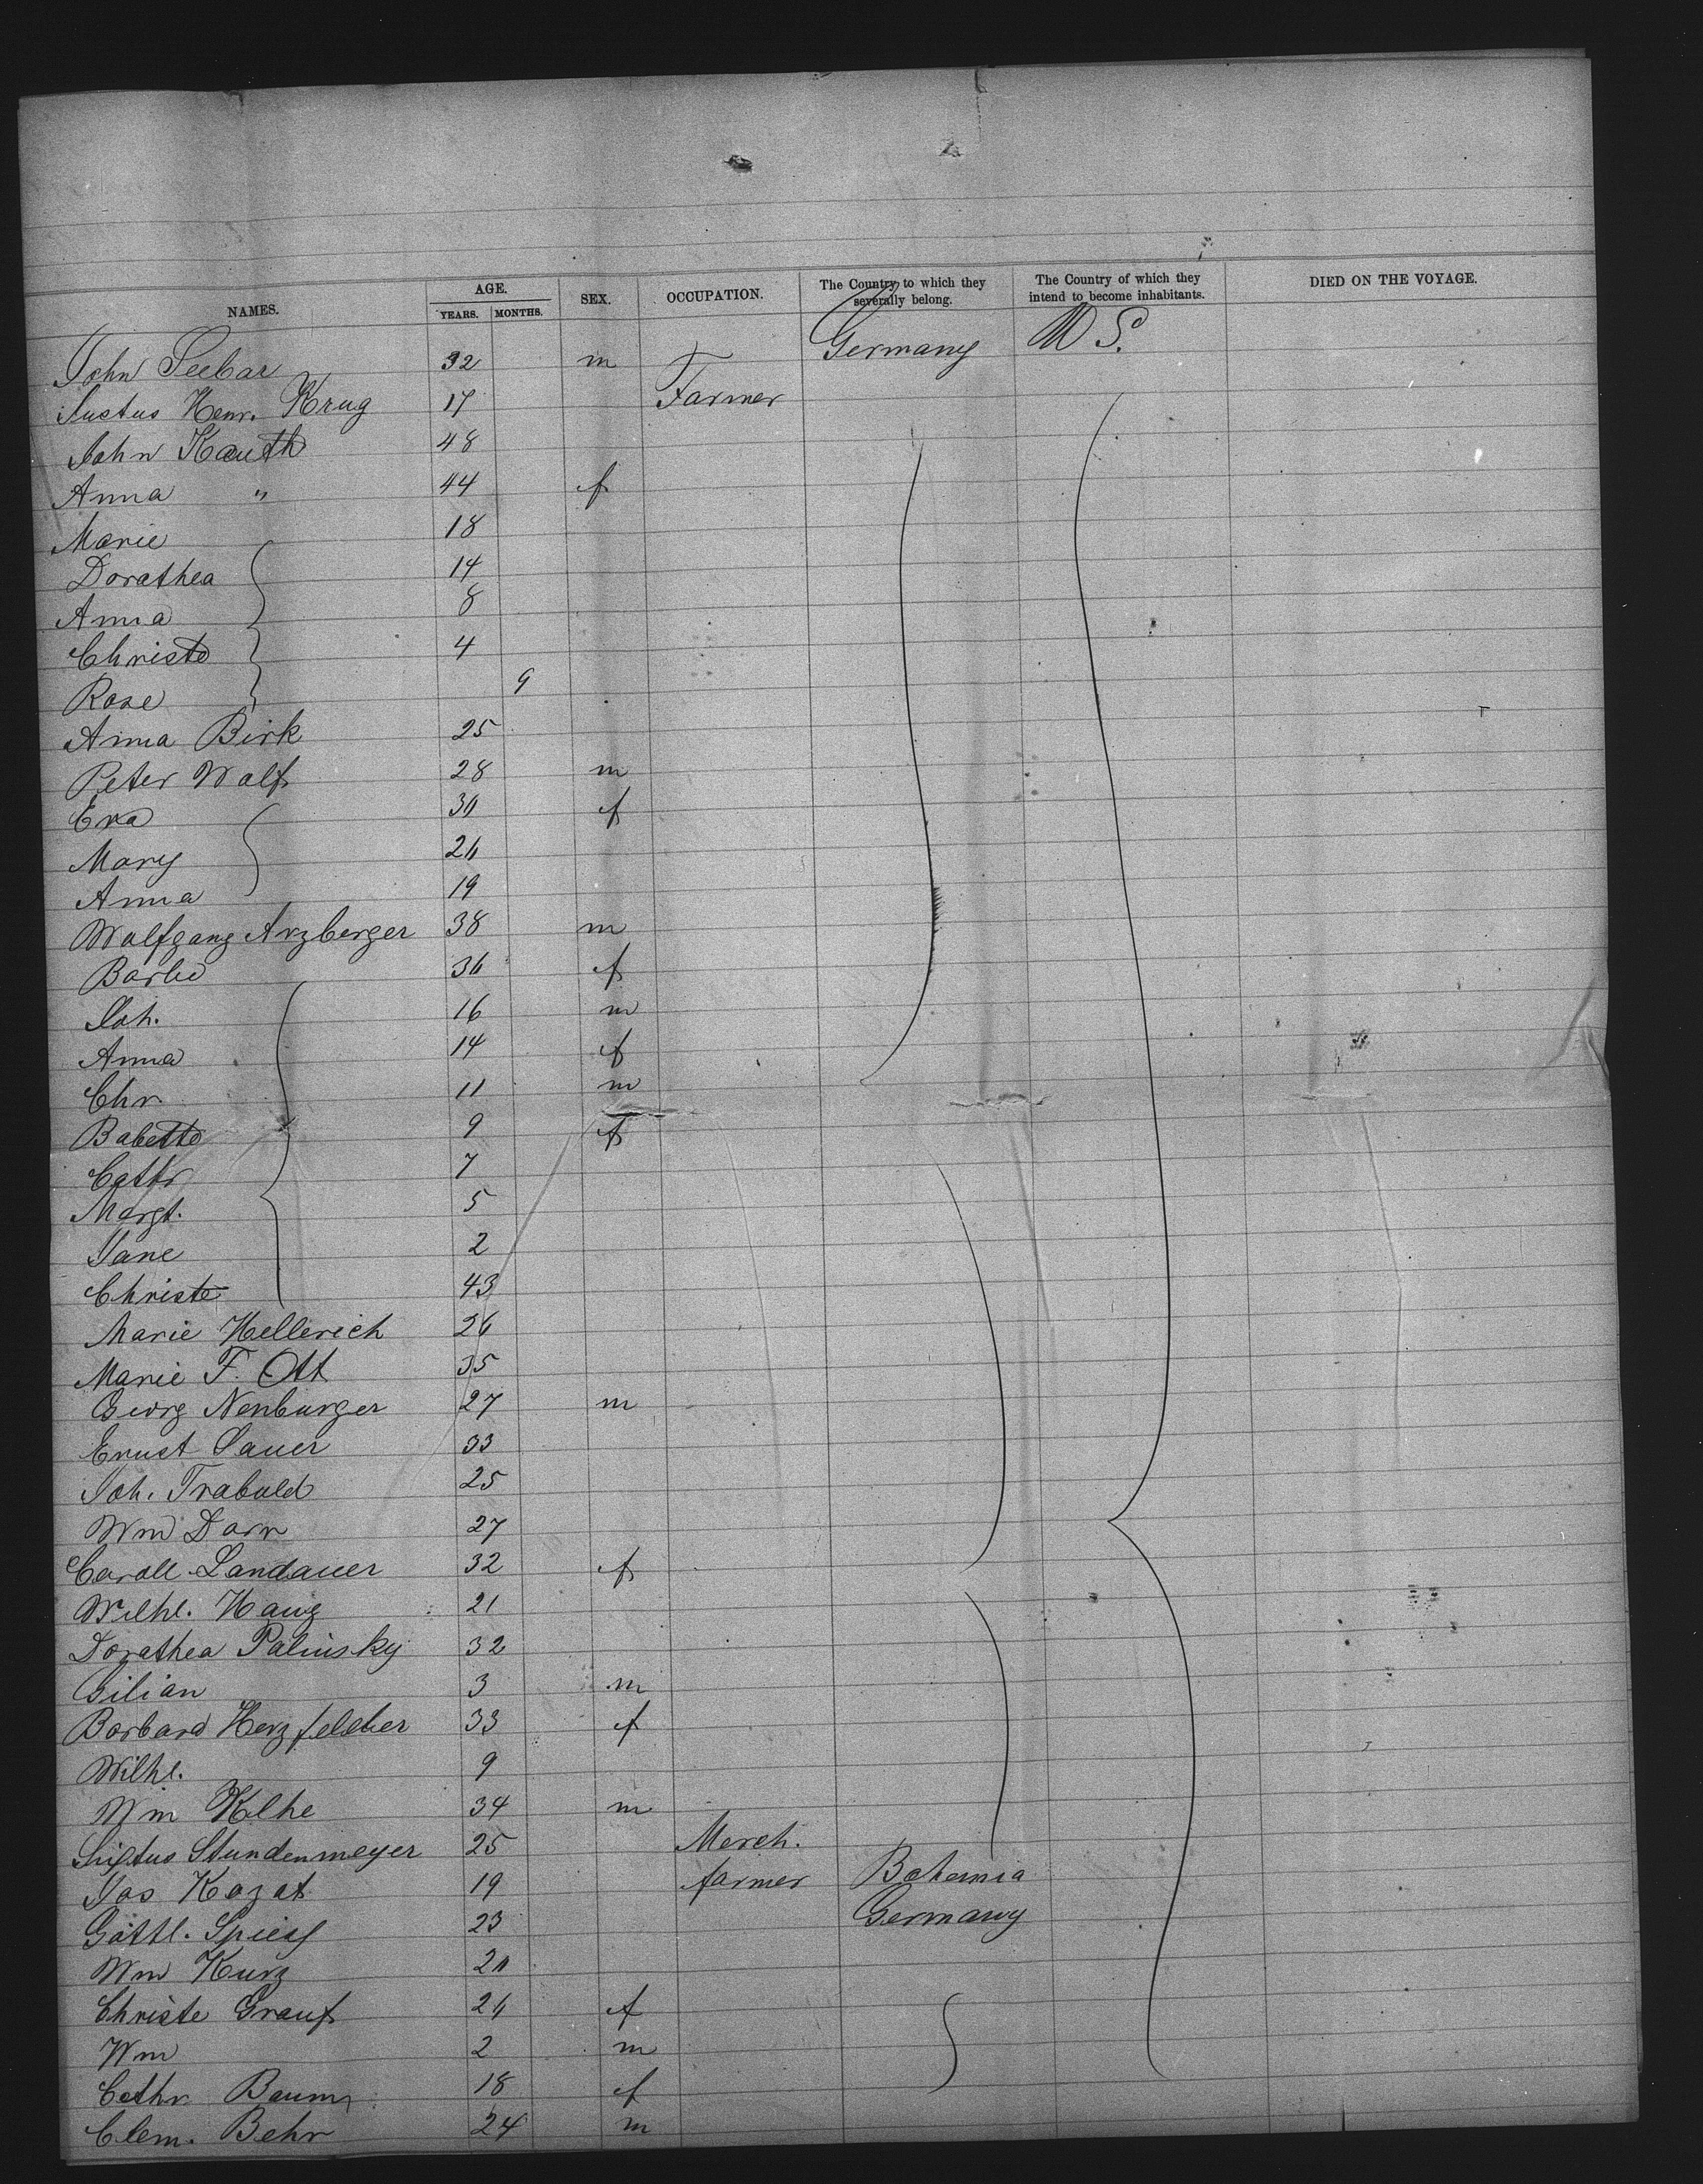 NAMES. AGE. YEARS. MONTHS. SEX. OCCUPATION. The Country to which they severally belong. The Country of which they intend to become inhabitants. DIED ON THE VOYAGE.
John Seebar 32 m Germany U S.
Justus Henr. Krug 17 Farmer
John Kauth 48
Anna " 44 f
Marie 18
Dorathea 14
Anna 8
Christe 4
Rose 9
Anna Birk 25
Peter Wolf 28 m
Eva f
Mary
Anna 19
Wolfgang Arzberger 38 m
Barbe f
Joh. 16 m
Anna 14 f
Chr. 11 m
Babette 9 f
Cathr 7
Margt. 5
Jane 2
Christe 43
Marie Hellerich 26
Marie F. Ott 35
Georg Nenburger 27 m
Ernst Sauer 33
Joh. Trabold 25
Wm Dorn 27
Caroll. Landauer 32 f
Wilhl. Haug 21
Dorathea Palinsky 32
Gilian 3 m
Barbara 33 f
Wilhl. 9
Wm Kelhe 34 m
Sixtus Stundenmeyer 25 Merch.
Jos Kozat 19 farmer Bohemia
Gottl. Spiess 23 Germany
Wm Kurz
Christe Grauf f
Wm 2 m
Cathr Baum 18 f
Clem. Behr 24 m